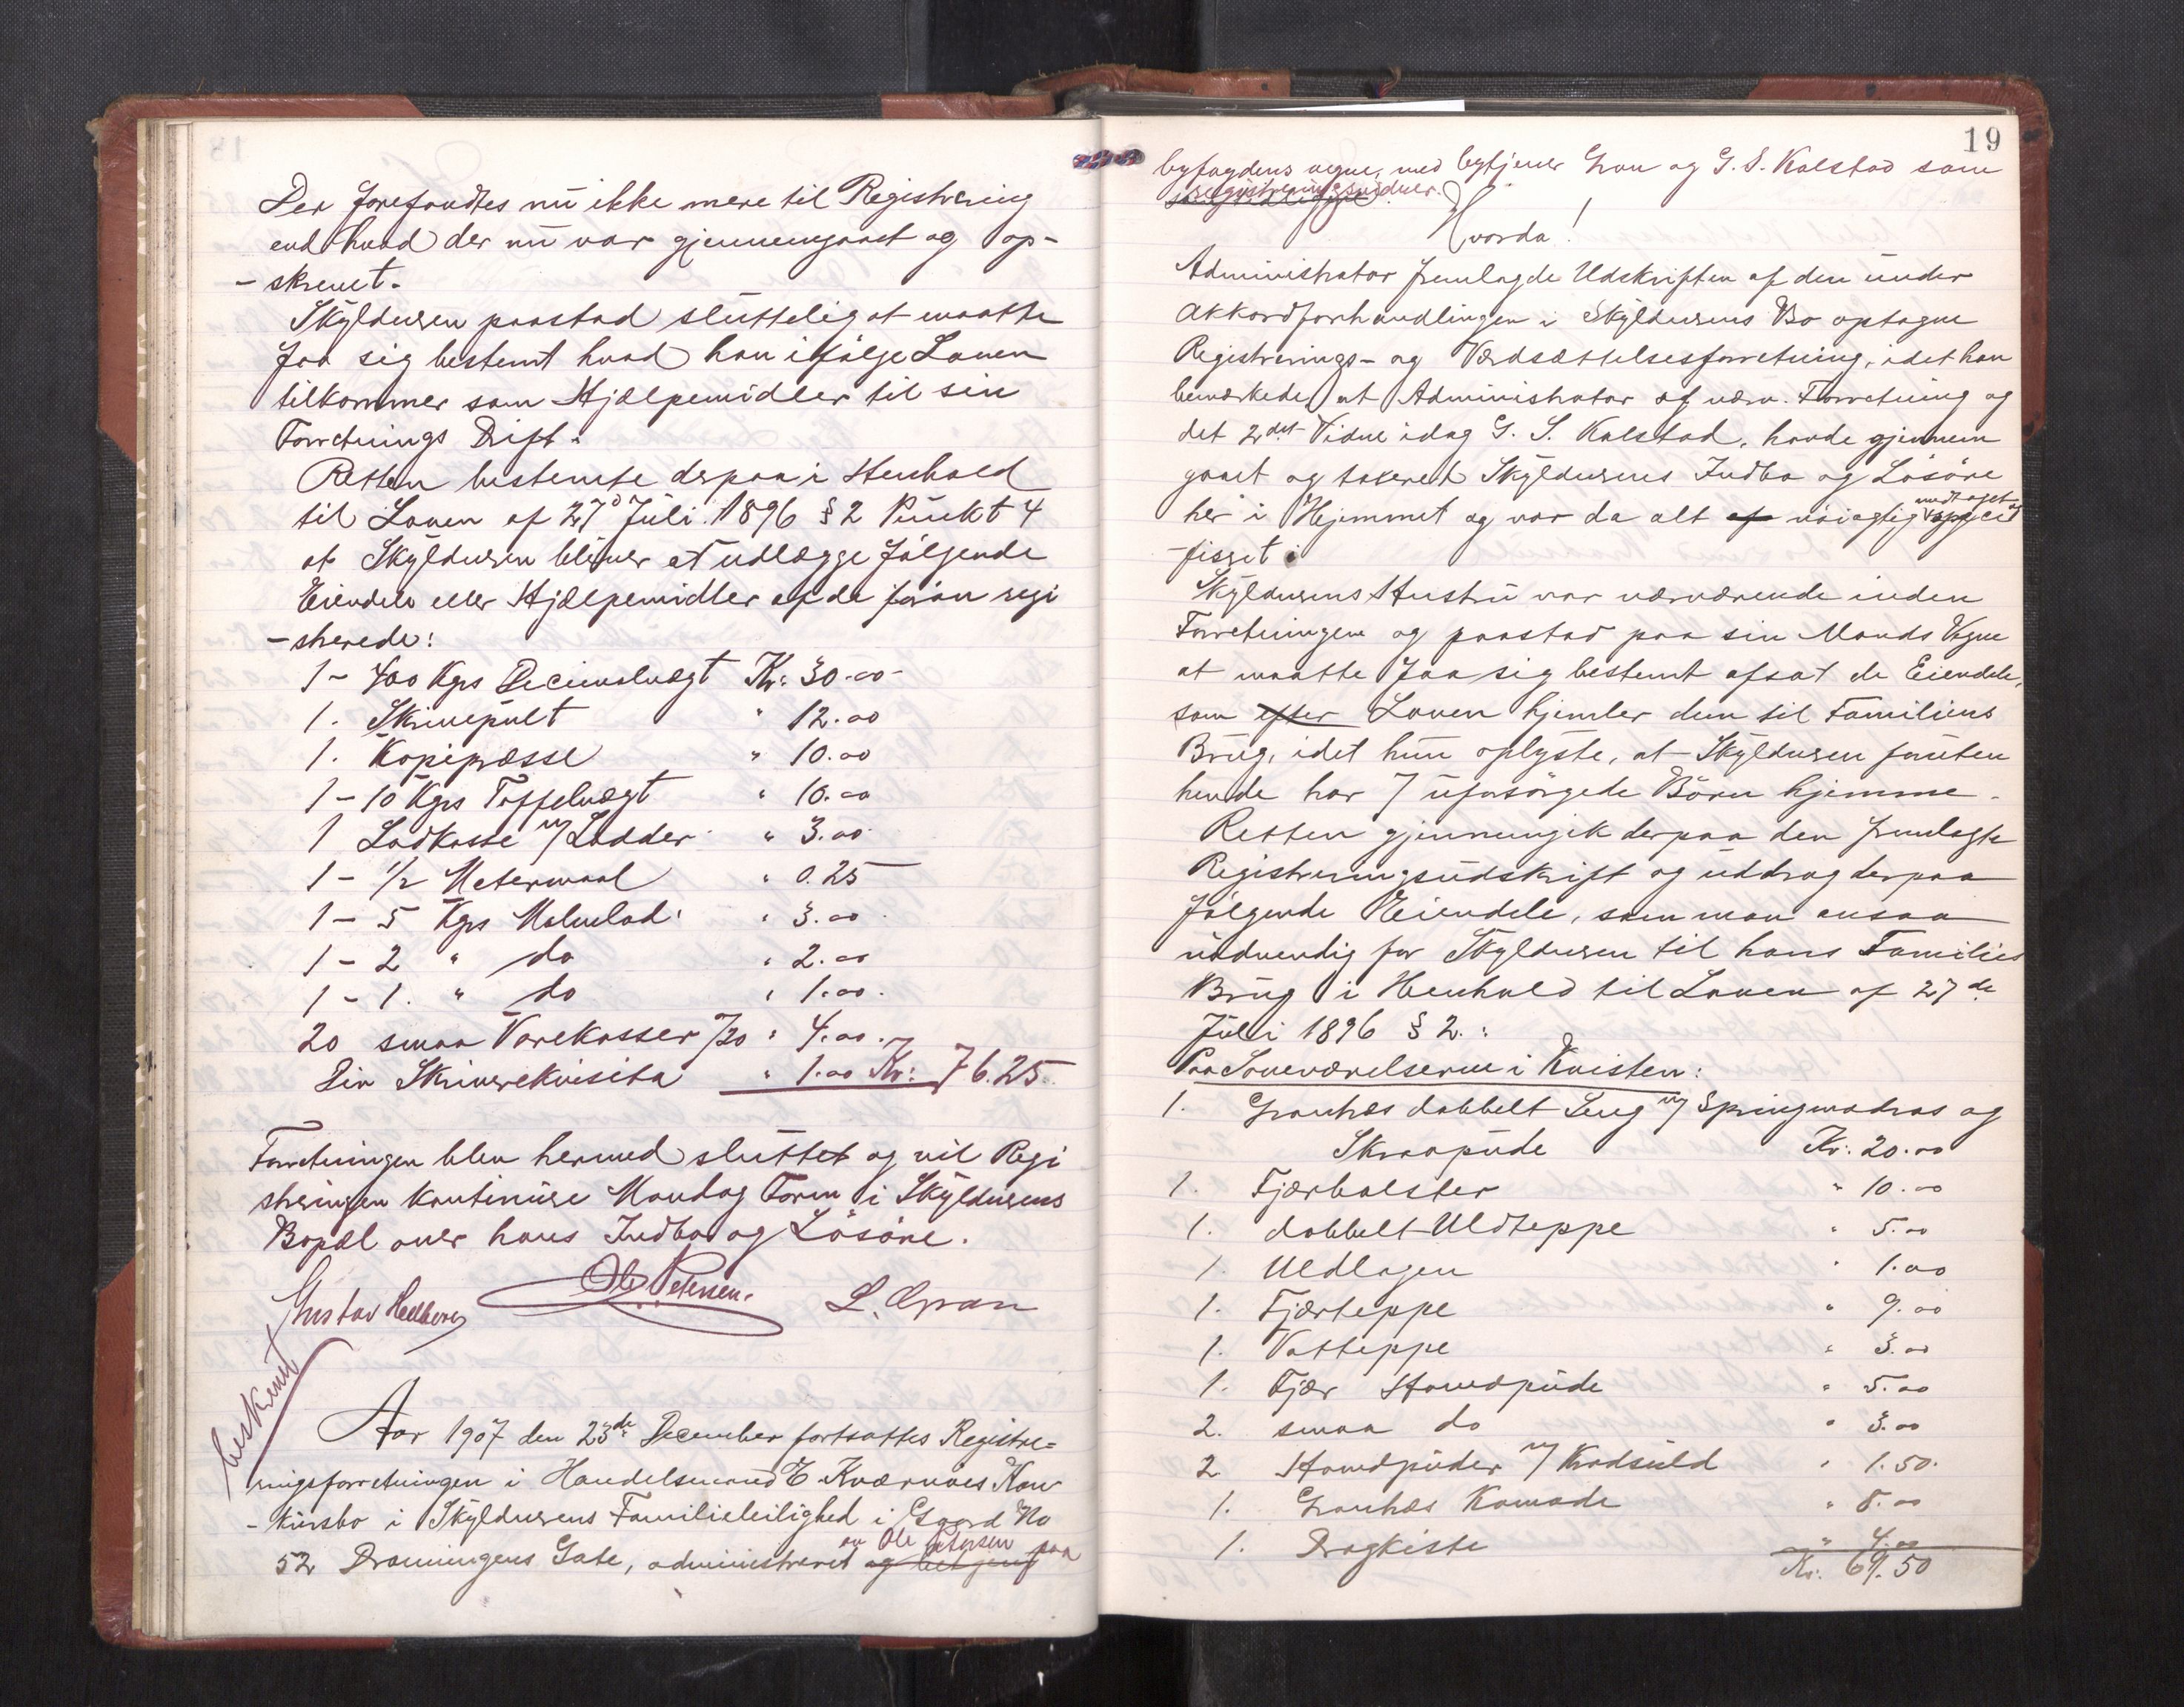 Der forefandtes nu ikke mere til Registrering
end hvad der nu var gjennemgaaet og op-
-skrevet.
Skyldneren paastod sluttelig at maatte
faa sig bestemt hvad han ifølge Loven
tilkommer som Hjælpemidler til sin
Forretnings Drift.
Retten bestemte derpaa i Henhold
til Loven af 27de Juli 1896 § 2 Punkt 4
at Skyldneren bliver at udlægge følgende
Eiendele eller Hjælpemidler af de foran regi
-strerede:
1 - 400 Kgrs Decimalvægt Kr: 30.00
1. Skrivepult " 12.00
1. Kopipresse " 10.00
1 - 10 Kgrs Taffelvægt " 10.00
1 Lodkasse m/ Lodder " 3.00
1 - 1/2 Metermaal " 0.25
1 - 5 Kgrs Malmlod " 3.00
1 - 2 " do " 2.00
1 - 1. " do " 1.00.
20 smaa Varekasser /20 " 4.00.
Div Skriverekvisita " 1.00 Kr: 76.25
Forretningen blev hermed sluttet og vil Regi
streringen kontinuere Mandag Form i Skyldnerens
Bopæl over hans Indbo og Løsøre.
Gustav Hellberg Ole Petersen. L. Gran
beskrevet
Aar 1907 den 23de December fortsattes Registre=
ringsforretningen i Handelsmand E Kværnæs Kon
-kursbo i Skyldnerens Familieleilighed i Gaard No
av Ole Petersen paa
52 Dronningens Gate, administreret og betjent
19
byfogdens vegne, med bytjener Gran og G. S. Kalstad som
registreringsvidner.
Hvorda!
Administrator fremlagde Udskriften af den under
Akkordforhandlingen i Skyldnerens Bo optagne
Registrerings- og Værdsættelsesforretning, idet han
bemærkede at Administrator af nævn. Forretning og
det 2det Vidne idag G. S. Kalstad, havde gjennem
gaaet og taxeret Skyldnerens Indbo og Løsøre
medtaget og
her i Hjemmet og var da alt af nøiagtig speci
-fisset.
Skyldnerens Hustru var nærværende under
Forretningen og paastod paa sin Mands Vegne
at maatte faa sig bestemt afsat de Eiendele,
som efter Loven hjemler dem til Familiens
Brug, idet hun oplyste, at Skyldneren foruten
hende har 7 uforsørgede Børn hjemme.
Retten gjennemgik derpaa den fremlagte
Registreringsudskrift og uddrog derpaa
følgende Eiendele, som man ansaa
nødvendig for Skyldneren til hans Families
Brug i Henhold til Loven af 27de
Juli 1896 § 2.:
Paa Soveværelserne i Kvisten:
1. Granhæs dobbelt Seng m/ Springmadras og
Skraapude Kr: 20.00
1. Fjærbolster " 10.00
1. dobbelt Uldteppe " 5.00
1. Uldlagen " 1.00
1. Fjærteppe " 9.00
1. Vatteppe " 3.00
1. Fjær Hovedpude " 5.00
2. smaa do " 3.00
2 Hovedpuder m/ Krølluld " 1.50.
1. Granhæs Komode " 8.00
1. Dragkiste " 4.00
Kr. 69.50